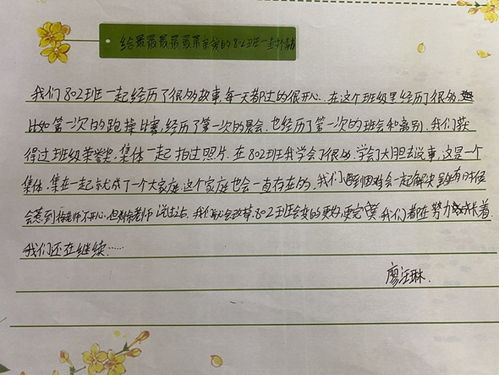 给最最最最最最亲爱的802班一封信
我们802班一起经历了很多故事,每一天都过的很开心,在这个班级里经历了很多
比如第一次的跑操比赛,经历了第一次的晨会,也经历了第一次的班会和离别,我们获
得过班级荣誉奖,集体一起拍过照片,在802班我学会了很多,学会了大胆去说事,这是一个
集体,集在一起就成了一个大家庭这个家庭也会一直存在的,我们遇到困难会一起解决,有时候
会惹到老师不开心,但老师说过后,我们就会改掉,802班会变的更好,更完美 我们都在努力成长着
我们还在继续……
廖江琳